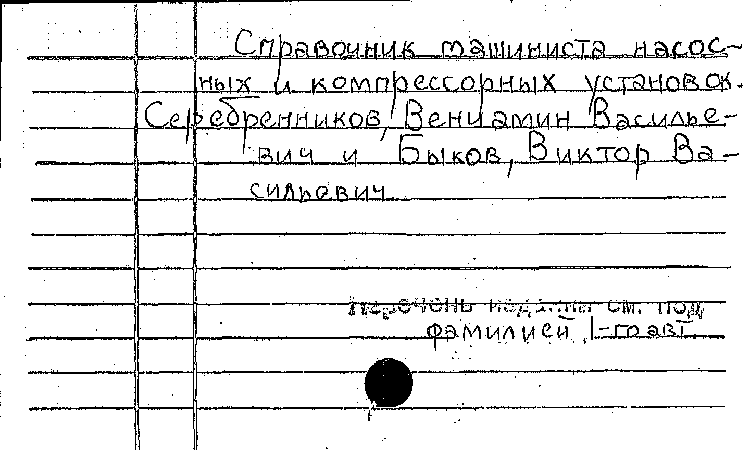 Справочник машиниста насос-
ных и компрессорных установок.
Серебренников, Вениамин Василье-
вич и Быков, Виктор Ва-
сильевич
Перечень издания см. под
фамилией 1-го авт.